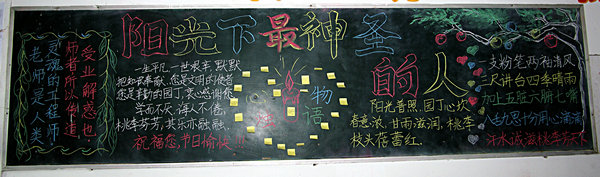 阳光下最神圣的人
老师是人类
灵魂的工程师
师者所以传道
受业解惑也
一生平凡 一世艰辛 默默
把知识奉献,您是文明的使者
您是辛勤的园丁,衷心感谢您
学而不厌,诲人不倦,
桃李芬芳,其乐亦融融。
祝福您,节日愉快!!!
物语
阳光普照,园丁心坎
春意浓,甘雨滋润,桃李
枝头蓓蕾红.
一支粉笔两袖清风
三尺讲台四季晴雨
加上五脏六腑七嘴
八舌九思十分用心滴滴
汗水诚滋桃李芳天下